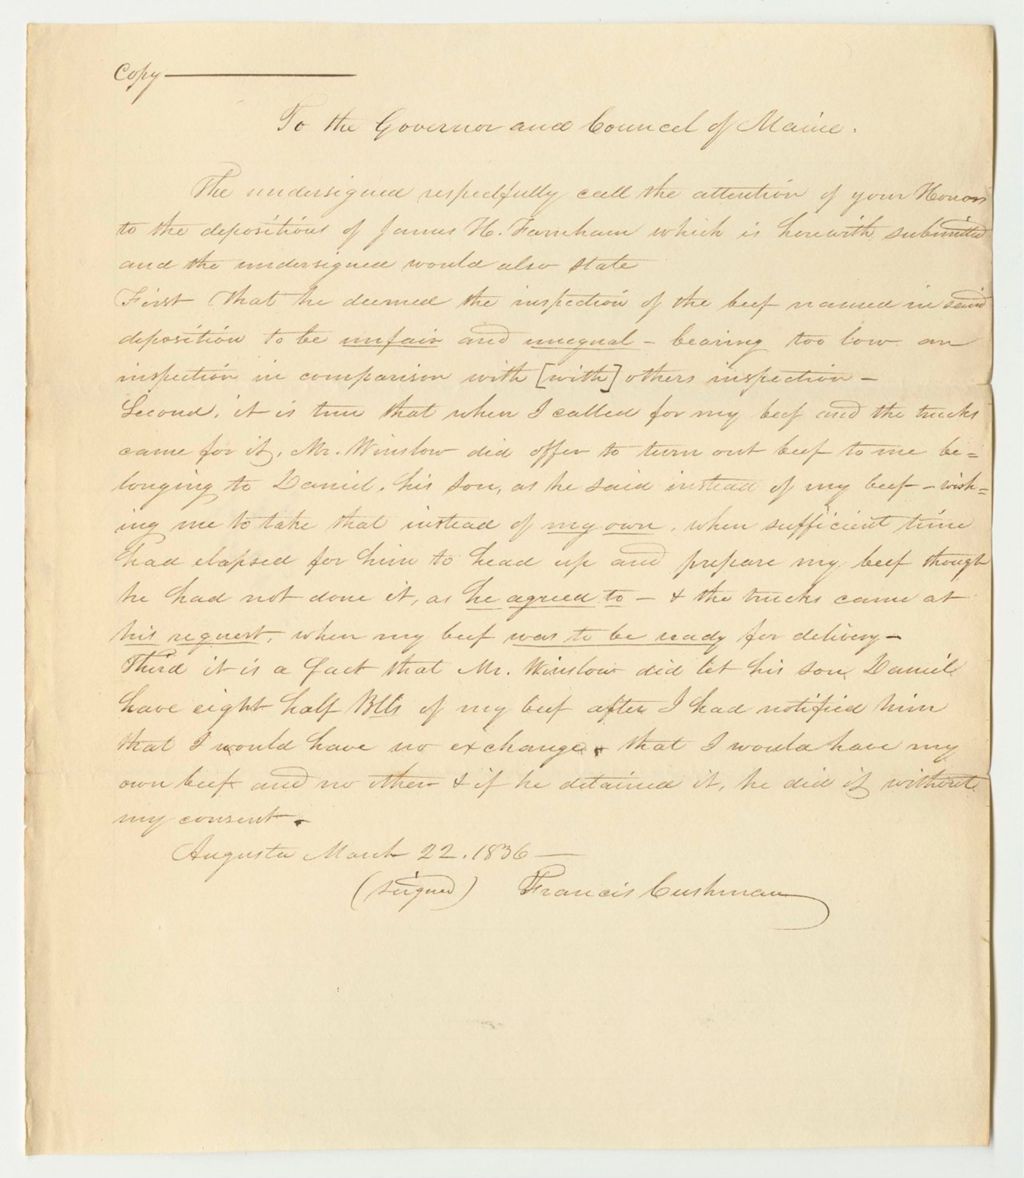 Copy
To the Governor and Council of Maine.
The undersigned respectfully call the attention of your Honors
to the depositions of James H. Farnham which is herewith submitted
and the undersigned would also state
First that he deemed the inspection of the beef named in said
deposition to be unfair and unequal - bearing too low an
inspection in comparison with [with] others inspection -
Second, it is true that when I called for my beef and the trucks
came for it, Mr. Winslow did offer to turn out beef to me be=
longing to Daniel, his son, as he said instead of my beef - wish=
ing me to take that instead of my own, when sufficient time
had elapsed for him to head up and prepare my beef though
he had not done it, as he agreed to - & the trucks came at
his request, when my beef was to be ready for delivery -
Third it is a fact that Mr. Winslow did let his son Daniel
have eight half Blls of my beef after I had notified him
that I would have no exchange, that I would have my
own beef and no other & if he detained it, he did it without
my consent.
Augusta March 22. 1836 -
(signed) Francis Cushman